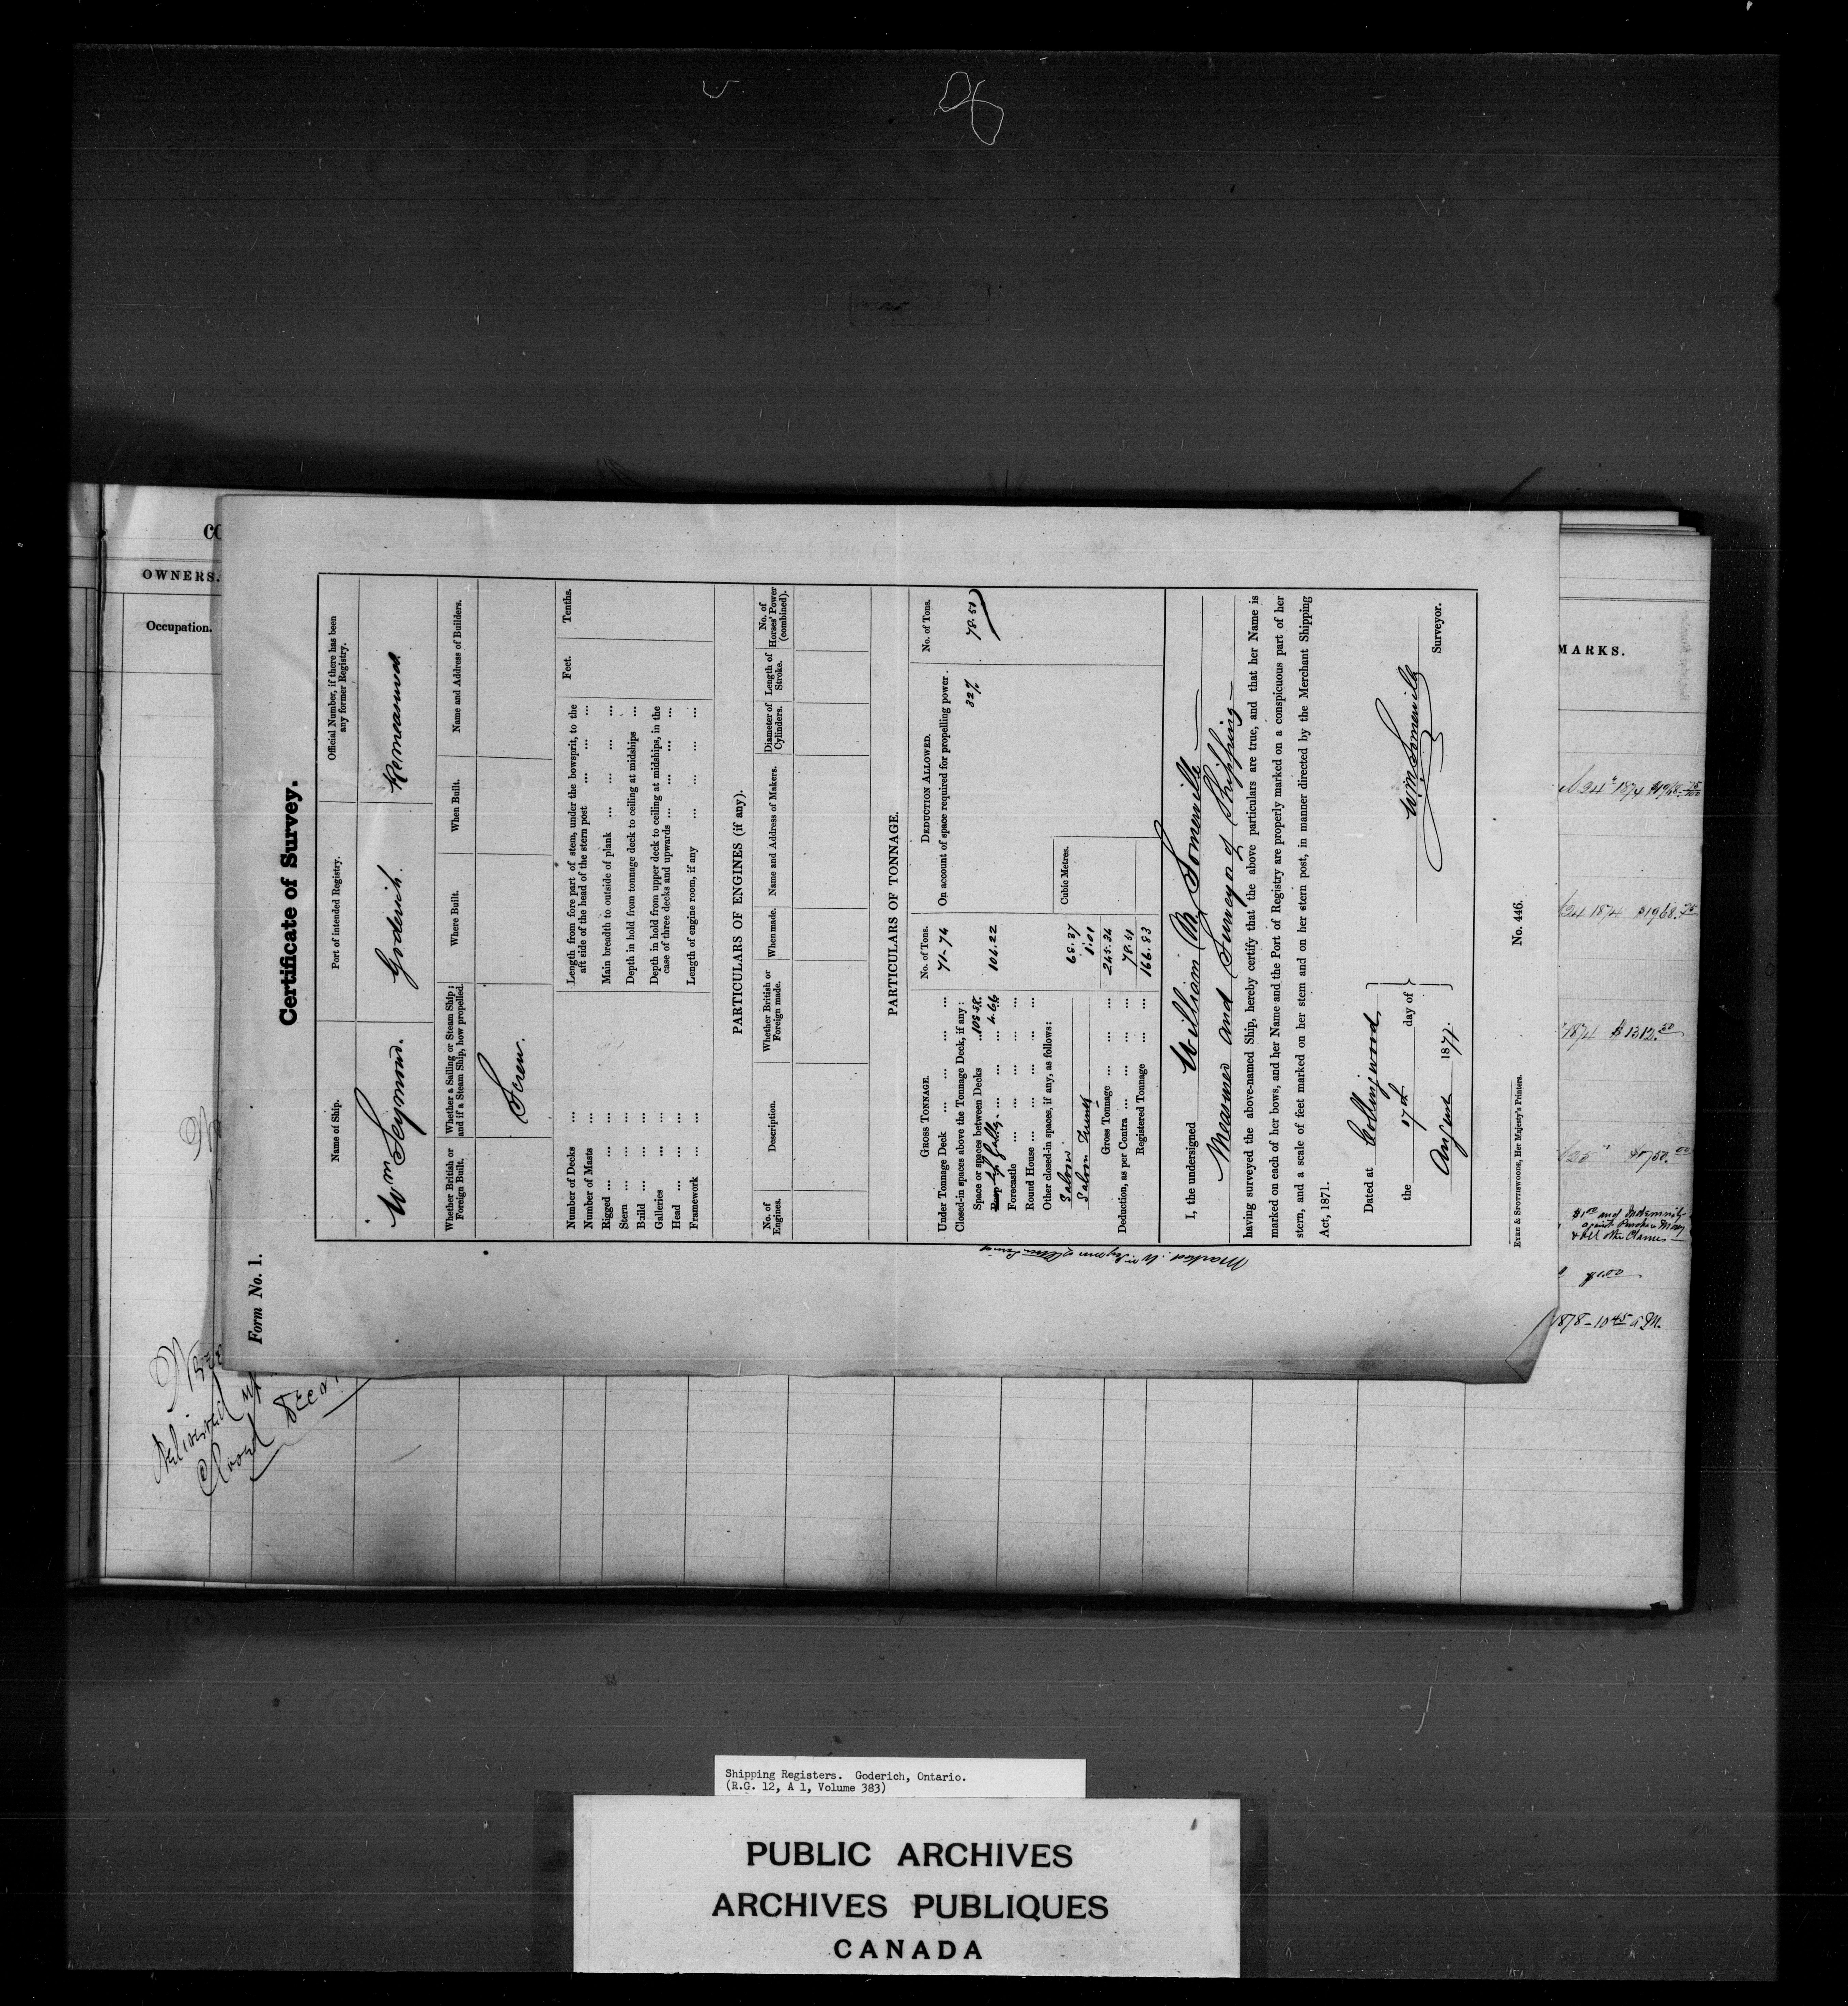 Form No. 1.
Certificate of Survey.
Name of Ship.
Port of intended Registry.
Official Number, if there has been any former Registry.
Wm Seymour.
Goderich.
Remeasured
Whether British or Foreign Built.
Whether a Sailing or Steam Ship; and if a Steam Ship, how propelled.
Where Built.
When Built.
Name and Address of Builders.
Screw.
Number of Decks ...
Number of Masts ...
Rigged ... ... ...
Stern ... ... ...
Build ... ... ...
Galleries ... ...
Head ... ... ...
Framework ... ...
Feet. Tenths.
Length from fore part of stem, under the bowsprit, to the
aft side of the head of the stern post ... ... ...
Main breadth to outside of plank ... ... ... ...
Depth in hold from tonnage deck to ceiling at midships ...
Depth in hold from upper deck to ceiling at midships, in the
case of three decks and upwards ... ... ... ...
Length of engine room, if any ... ... ... ...
PARTICULARS OF ENGINES (if any).
No. of Engines.
Description.
Whether British or Foreign made.
When made.
Name and Address of Makers.
Diameter of Cylinders.
Length of Stroke.
No. of Horses' Power (combined).
PARTICULARS OF TONNAGE.
GROSS TONNAGE. No. of Tons.
Under Tonnage Deck ... ... ... ... 71-74
Closed-in spaces above the Tonnage Deck, if any:
Space or spaces between Decks ... 108.88
... 106.22
Forecastle ... ... ... ...
Round House ... ... ... ...
Other closed-in spaces, if any, as follows:
Saloon 65.27
Saloon 1.01
Cubic Metres.
Gross Tonnage ... ... ... 245.34
Deduction, as per Contra ... ... ... 78.51
Registered Tonnage ... ... 166.83
DEDUCTION ALLOWED. No. of Tons.
On account of space required for propelling power .
32% 78.51
I, the undersigned William M. Somerville
Measurer and Surveyor of Shipping
having surveyed the above-named Ship, hereby certify that the above particulars are true, and that her Name is
marked on each of her bows, and her Name and the Port of Registry are properly marked on a conspicuous part of her
stern, and a scale of feet marked on her stem and on her stern post, in manner directed by the Merchant Shipping
Act, 1871.
Dated at Collingwood,
the 17th day of
August 1877.
Wm Somerville
Surveyor.
No. 446.
EYRE & SPOTTISWOODE, Her Majesty's Printers.
OWNERS.
Occupation.
Delivered up
Closed
MARKS.
24 1874 $1968.75
1874 $1312.50
$1.00 and Indemnity
against Purchase Money
& all other Claims
$1.00
1878-10 45 a.m.
Shipping Registers. Goderich, Ontario.
(R.G. 12, A 1, Volume 383)
PUBLIC ARCHIVES
ARCHIVES PUBLIQUES
CANADA